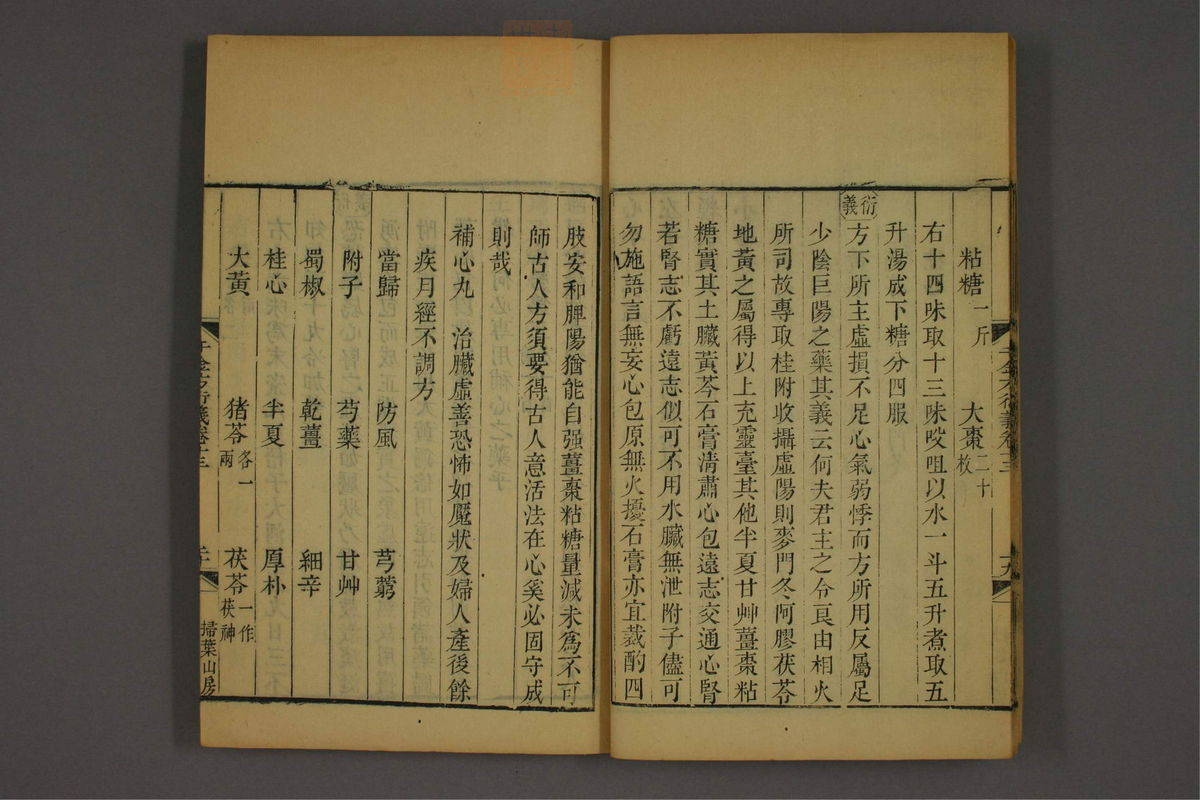 粘糖一斤 大棗二十枚
右十四味取十三味㕮咀以水一斗五升煮取五
升湯成下糖分四服
衍義
方下所主虛損不足心氣弱悸而方所用反屬足
少陰巨陽之藥其義云何夫君主之令良由相火
所司故專取桂附收攝虛陽則麥門冬阿膠茯苓
地黃之屬得以上充靈臺其他半夏甘艸薑棗粘
糖實其土臟黃芩石膏淸肅心包遠志交通心腎
若腎志不虧遠志似可不用水臟無泄附子儘可
勿施語言無妄心包原無火擾石膏亦宜裁酌四
千金方衍義卷十三
十九
肢安和脾陽猶能自强薑棗粘糖量減未爲不可
師古人方須要得古人意活法在心奚必固守成
則哉
補心丸 治臟虛善恐怖如魘狀及婦人產後餘
疾月經不調方
當歸 防風 芎藭
附子 芍藥 甘艸
蜀椒 乾薑 細辛
桂心 半夏 厚朴
大黃 猪苓各一兩 茯苓一作茯神
千金方衍義卷十三
二十
掃葉山房